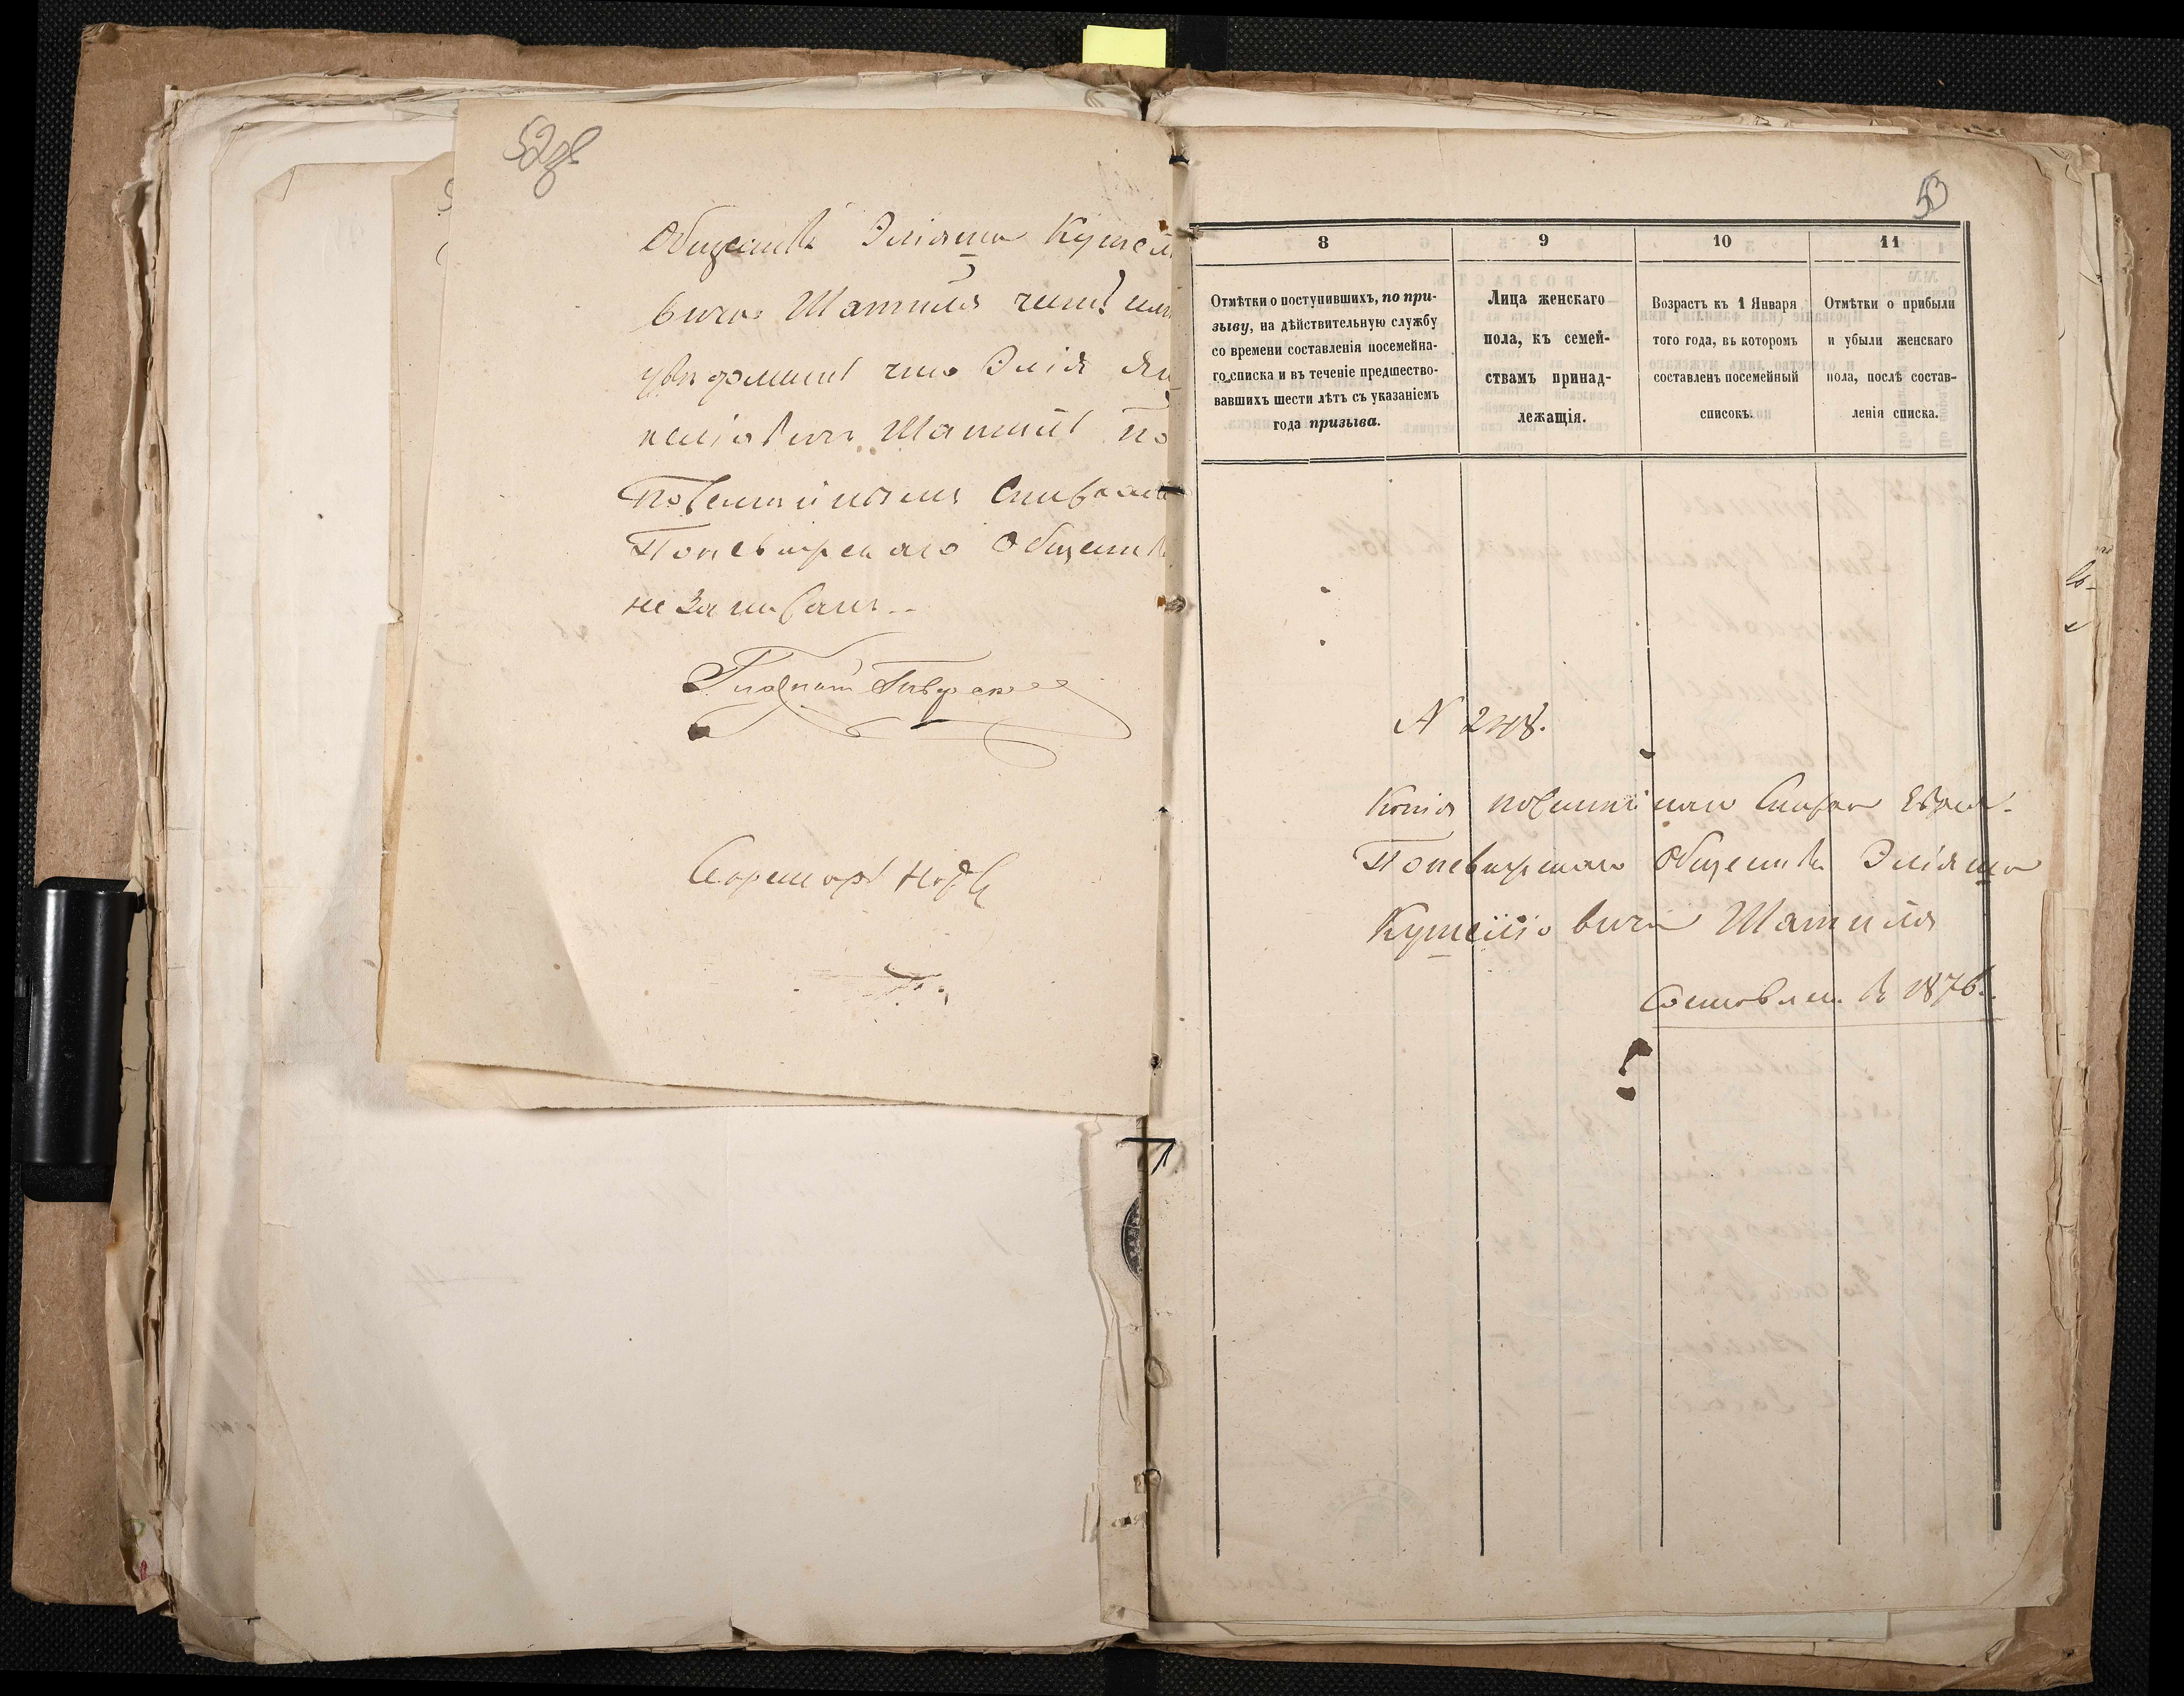 52об
Общества Эліяша Кушел
вича Шатиля честь имѣ
увѣдомить что Элія Ян
келіовичъ Шатиль по
Посемейнымъ Спискамъ
Поневѣжскаго Общества
не Записанъ
Секретарь
53
8 9 10 11
Отмѣтки о поступившихъ, по при-
зыву, на дѣйствительную службу
со времени составленія посемейна-
го списка и въ теченіе предшество-
вавшихъ шести лѣтъ съ указаніемъ
года призыва.
Лица женскаго
пола, къ семей-
ствамъ принад-
лежащія.
Возрастъ къ 1 Января
того года, въ которомъ
составленъ посемейный
списокъ.
Отмѣтки о прибыли
и убыли женскаго
пола, послѣ состав-
ленія списка.
N 248.
Копія посемейнаго Списка Еврея
Поневѣжскаго Общества Эліяша
Кушеліовича Шатиля
Составлен. въ 1876.